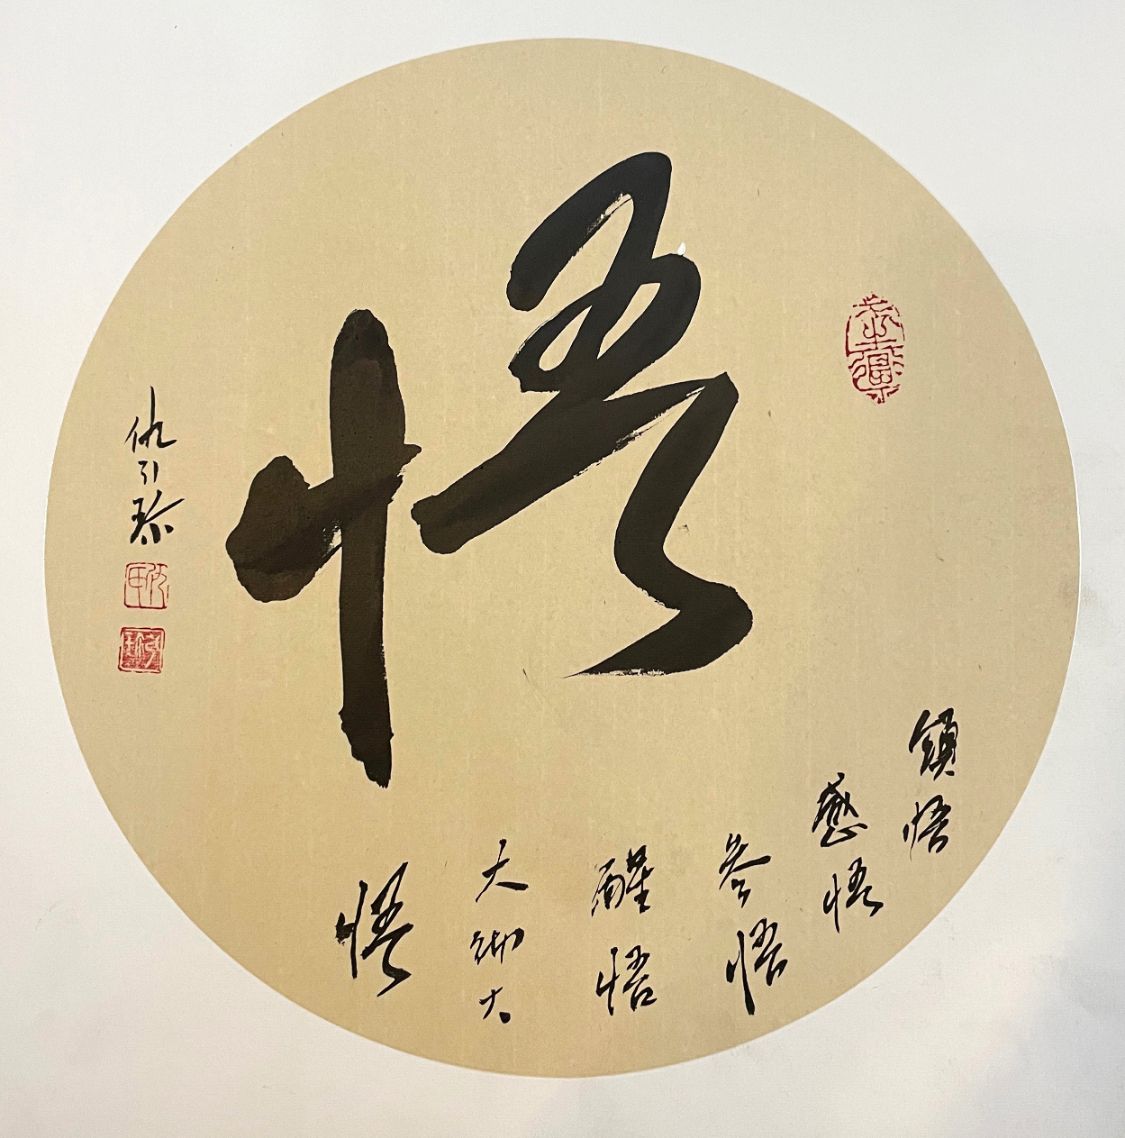 悟
領悟
感悟
参悟
醒悟
大彻大
悟
仇引珍